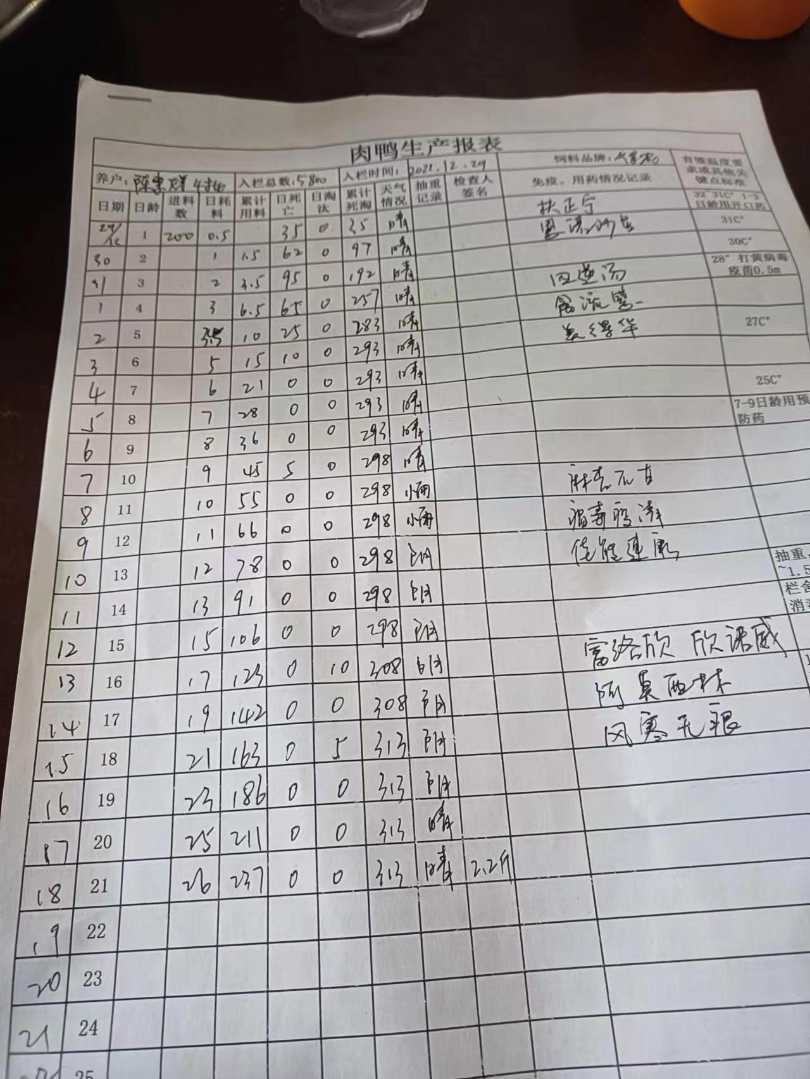 肉鸭生产报表
养户: 入栏总数:5800 入栏时间:2021.12.29 饲料品牌: 有雏温度要求或其他关键点标准
日期 日龄 进料数 日耗料 累计用料 日死亡 日淘汰 累计死淘 天气情况 抽重记录 检查人签名 免疫、用药情况记录
29/12 1 200 0.5 35 0 35 晴 扶正宁 32°31C° 1-3日龄用开口药
30 2 1 1.5 62 0 97 晴 31C°
31 3 2 3.5 95 0 192 晴 30C°
1 4 3 6.5 65 0 257 晴 28°打黄病毒疫苗0.5m
2 5 3.5 10 25 0 283 晴
3 6 5 15 10 0 293 晴 27C°
4 7 6 21 0 0 293 晴
5 8 7 28 0 0 293 晴 25C°
6 9 8 36 0 0 293 晴 7-9日龄用预防药
7 10 9 45 5 0 298 晴
8 11 10 55 0 0 298 小雨
9 12 11 66 0 0 298 小雨
10 13 12 78 0 0 298 阴
11 14 13 91 0 0 298 阴
12 15 15 106 0 0 298 阴
13 16 17 123 0 10 308 阴 富洛欣 欣诺威
14 17 19 142 0 0 308 阴 阿莫西林
15 18 21 163 0 5 313 阴 风寒无狠
16 19 23 186 0 0 313 阴
17 20 25 211 0 0 313 晴
18 21 26 237 0 0 313 晴 2.2斤
19 22
20 23
21 24
25